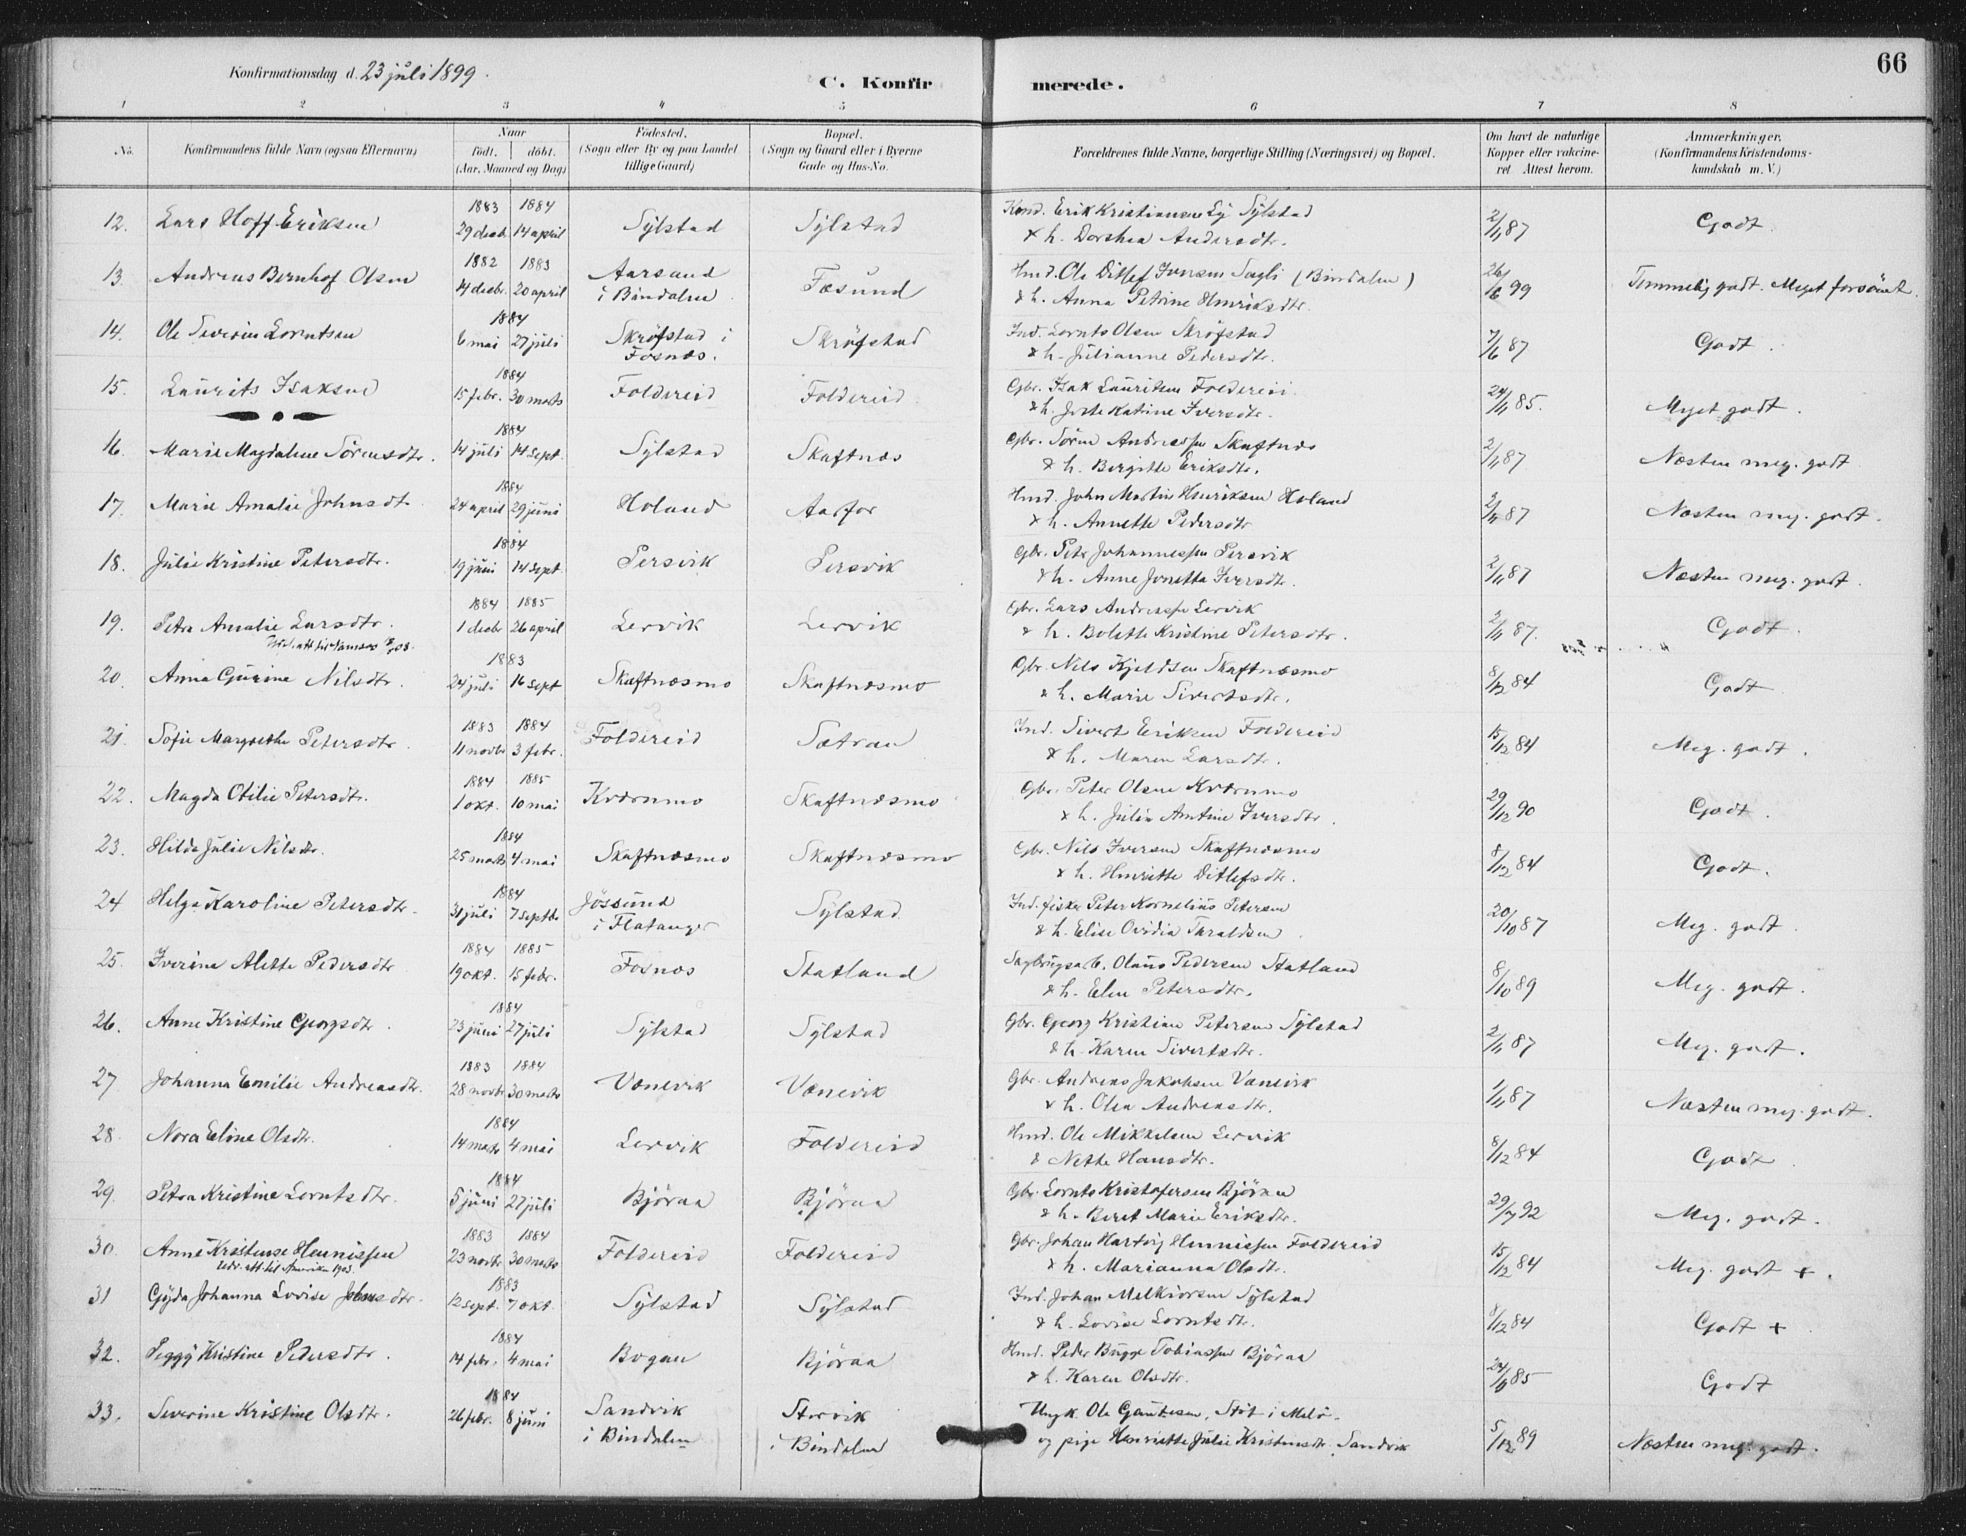 66
Konfirmationsdag d. 23 juli 1899.
C. Konfirmerede.
1 2 3 4 5 6 7 8
No. Konfirmandens fulde Navn (ogsaa Efternavn) Naar födt. döbt. (Aar, Maaned og Dag) Födested. (Sogn eller By og paa Landet tillige Gaard) Bopæl. (Sogn og Gaard eller i Byerne Gade og Hus-No. Forældrenes fulde Navne, borgerlige Stilling (Næringsvei) og Bopæl. Om havt de naturlige Kopper eller vakcineret. Attest herom. Anmærkninger. (Konfirmandens Kristendomskundskab m. V.)
12. Lars Hoff Eriksen 1883 29 decb. 1884 14 april Sylstad Sylstad Erik Kristiansen Sylstad
& h. Dorthea Andersdtr. 2/11 87 Godt.
13. Andreas Bernhof Olsen 1882 14 decbr. 1883 20 april Aarsand i Bindalen Fæsund Hmd. Ole Ditlef Iversen (Bindalen)
& h. Anna Petrine Henriksdtr. 26/6 99 Temmelig godt. Meget forsömt.
14. Ole Severin Lorntsen 1884 6 mai 27 juli Skröfstad i Fosnæs. Skröfstad Ind. Lornts Olsen Skröfstad
& h. Julianne Pedersdtr. 7/6 87 Godt.
15. Laurits Isaksen 1884 15 febr. 30 marts Foldereid Foldereid Gbr. Isak Lauritsen Foldereid
& h. Katrine Iversdtr. 24/11 85. Myet godt.
16. Marie Magdalene Sörensdtr. 1884 14 juli 14 sept. Sylstad Skaftnæs Gbr. Sören Andreassen Skaftnæs
& h. Bergitte Eriksdtr. 2/11 87 Næsten meg. godt
17. Marie Amalie Johnsdt. 1884 24 april 29 juni Holand Aarfor Hmd. John Martin Henriksen Holand
& h. Annette Pedersdtr 2/11 87 Næsten meg. godt.
18. Julie Kristine Petersdtr. 1884 19 juni 14 sept. Persvik Persvik Gbr. Peter Johannessen Persvik
& h. Anne Jonetta Iversdtr. 2/11 87 Næsten meg. godt.
19. Petra Amalie Larsdtr. 1884 1 decbr 1885 26 april Lervik Lervik Gbr. Lars Andreassen Lervik
& h. Bolette Kristine Petersdtr. 2/11 87. Godt.
20. Anna Gurine Nilsdtr. 1883 24 juli 16 sept Skaftnæsmo Skaftnæsmo Gbr. Nils Kjeldsen Skaftnæsmo
& h. Marie Sivertsdtr. 8/12 84 Godt
21. Sofie Margrethe Petersdtr. 1883 11 novbr 1884 3 febr. Foldereid Sætran Ind. Sivert Eriksen Foldereid
& h. Maren Larsdtr. 15/12 84 Meg. godt.
22. Magda Otilie Petersdtr. 1884 1 okt. 1885 10 mai Kværnmo Skaftnæsmo Gbr. Peter Olsen Kværnmo
& h. Julia Amtine Iversdtr. 29/12 90 Godt.
23. Hilda Julie Nilsdtr. 1884 25 marts 4 mai Skaftnæsmo Skaftnæsmo Gbr. Nils Iversen Skaftnæsmo
& h. Henriette Ditlefsdtr. 8/12 84 Godt.
24 Helga Karoline Petersdtr. 1884 31 juli 7 septbr Jössund i Flatanger Sylstad Ind. fisker Peter Kornelius Petersen
& h. Elise Ovidia Tharaldsen 20/10 87 Meg. godt.
25. Iverine Alette Pedersdtr 1884 19 okt. 1885 15 febr. Fosnæs Statland Sagbrugsarb. Olaus Pedersen Statland
& h. Elen Petersdtr. 8/10 89 Meg. godt.
26. Anne Kristine Georgsdtr. 1884 23 juni 27 juli Sylstad Sylstad Gbr. Georg Kristian Petersen Sylstad
& h. Karen Sivertsdtr. 2/11 87 Meg. godt.
27 Johanna Emilie Andreasdtr. 1883 28 novbr 1884 30 marts Vænevik Vænevik Gbr. Andreas Jakobsen Vænevik
& h. Olea Andreasdtr. 1/11 87 Næsten meg. godt.
28. Nora Eline Olsdtr. 1884 14 marts 4 mai Lervik Foldereid Hmd. Ole Mikkelsen Lervik
& Nette Hansdtr. 8/12 84 Godt
29. Petra Kristine Lorntsdtr. 1884 5 juni 27 juli Björaa Björaa Gbr. Lornts Kristofersen Björaa
& h. Beret Marie Eriksdtr. 29/7 92 Meg. godt.
30. Anne Kristense Hennissen 1883 23 novbr 1884 30 marts Foldereid Foldereid Gbr. Johan Hartvig Hennissen Foldereid
Udv. att. til Amerika 1903. & h. Marianna Olsdtr. 15/12 84 Meg. godt +.
31 Gyda Johanna Lovise Johnsdtr. 1883 12 sept. 7 okt. Sylstad Sylstad Ind. Johan Melkiorsen Sylstad
& h. Lovise Lorntsdtr. 8/12 84 Godt +
32. Peggy Kristine Pedersdtr. 1884 14 febr. 4 mai Bogan Björaa Hmd. Peder Bugge Tobiassen Björaa
& h. Karen Olsdtr. 24/6 85 Godt
33. Severine Kristine Olsdtr. 1884 26 febr. 8 juni Sandvik i Bindalen Storvik i Bindalen Ungk. Ole Gautesen, Stöt i Melö.
og pige Henriette Julie Kristensdtr. Sandvik 5/12 89 Næsten meg. godt.